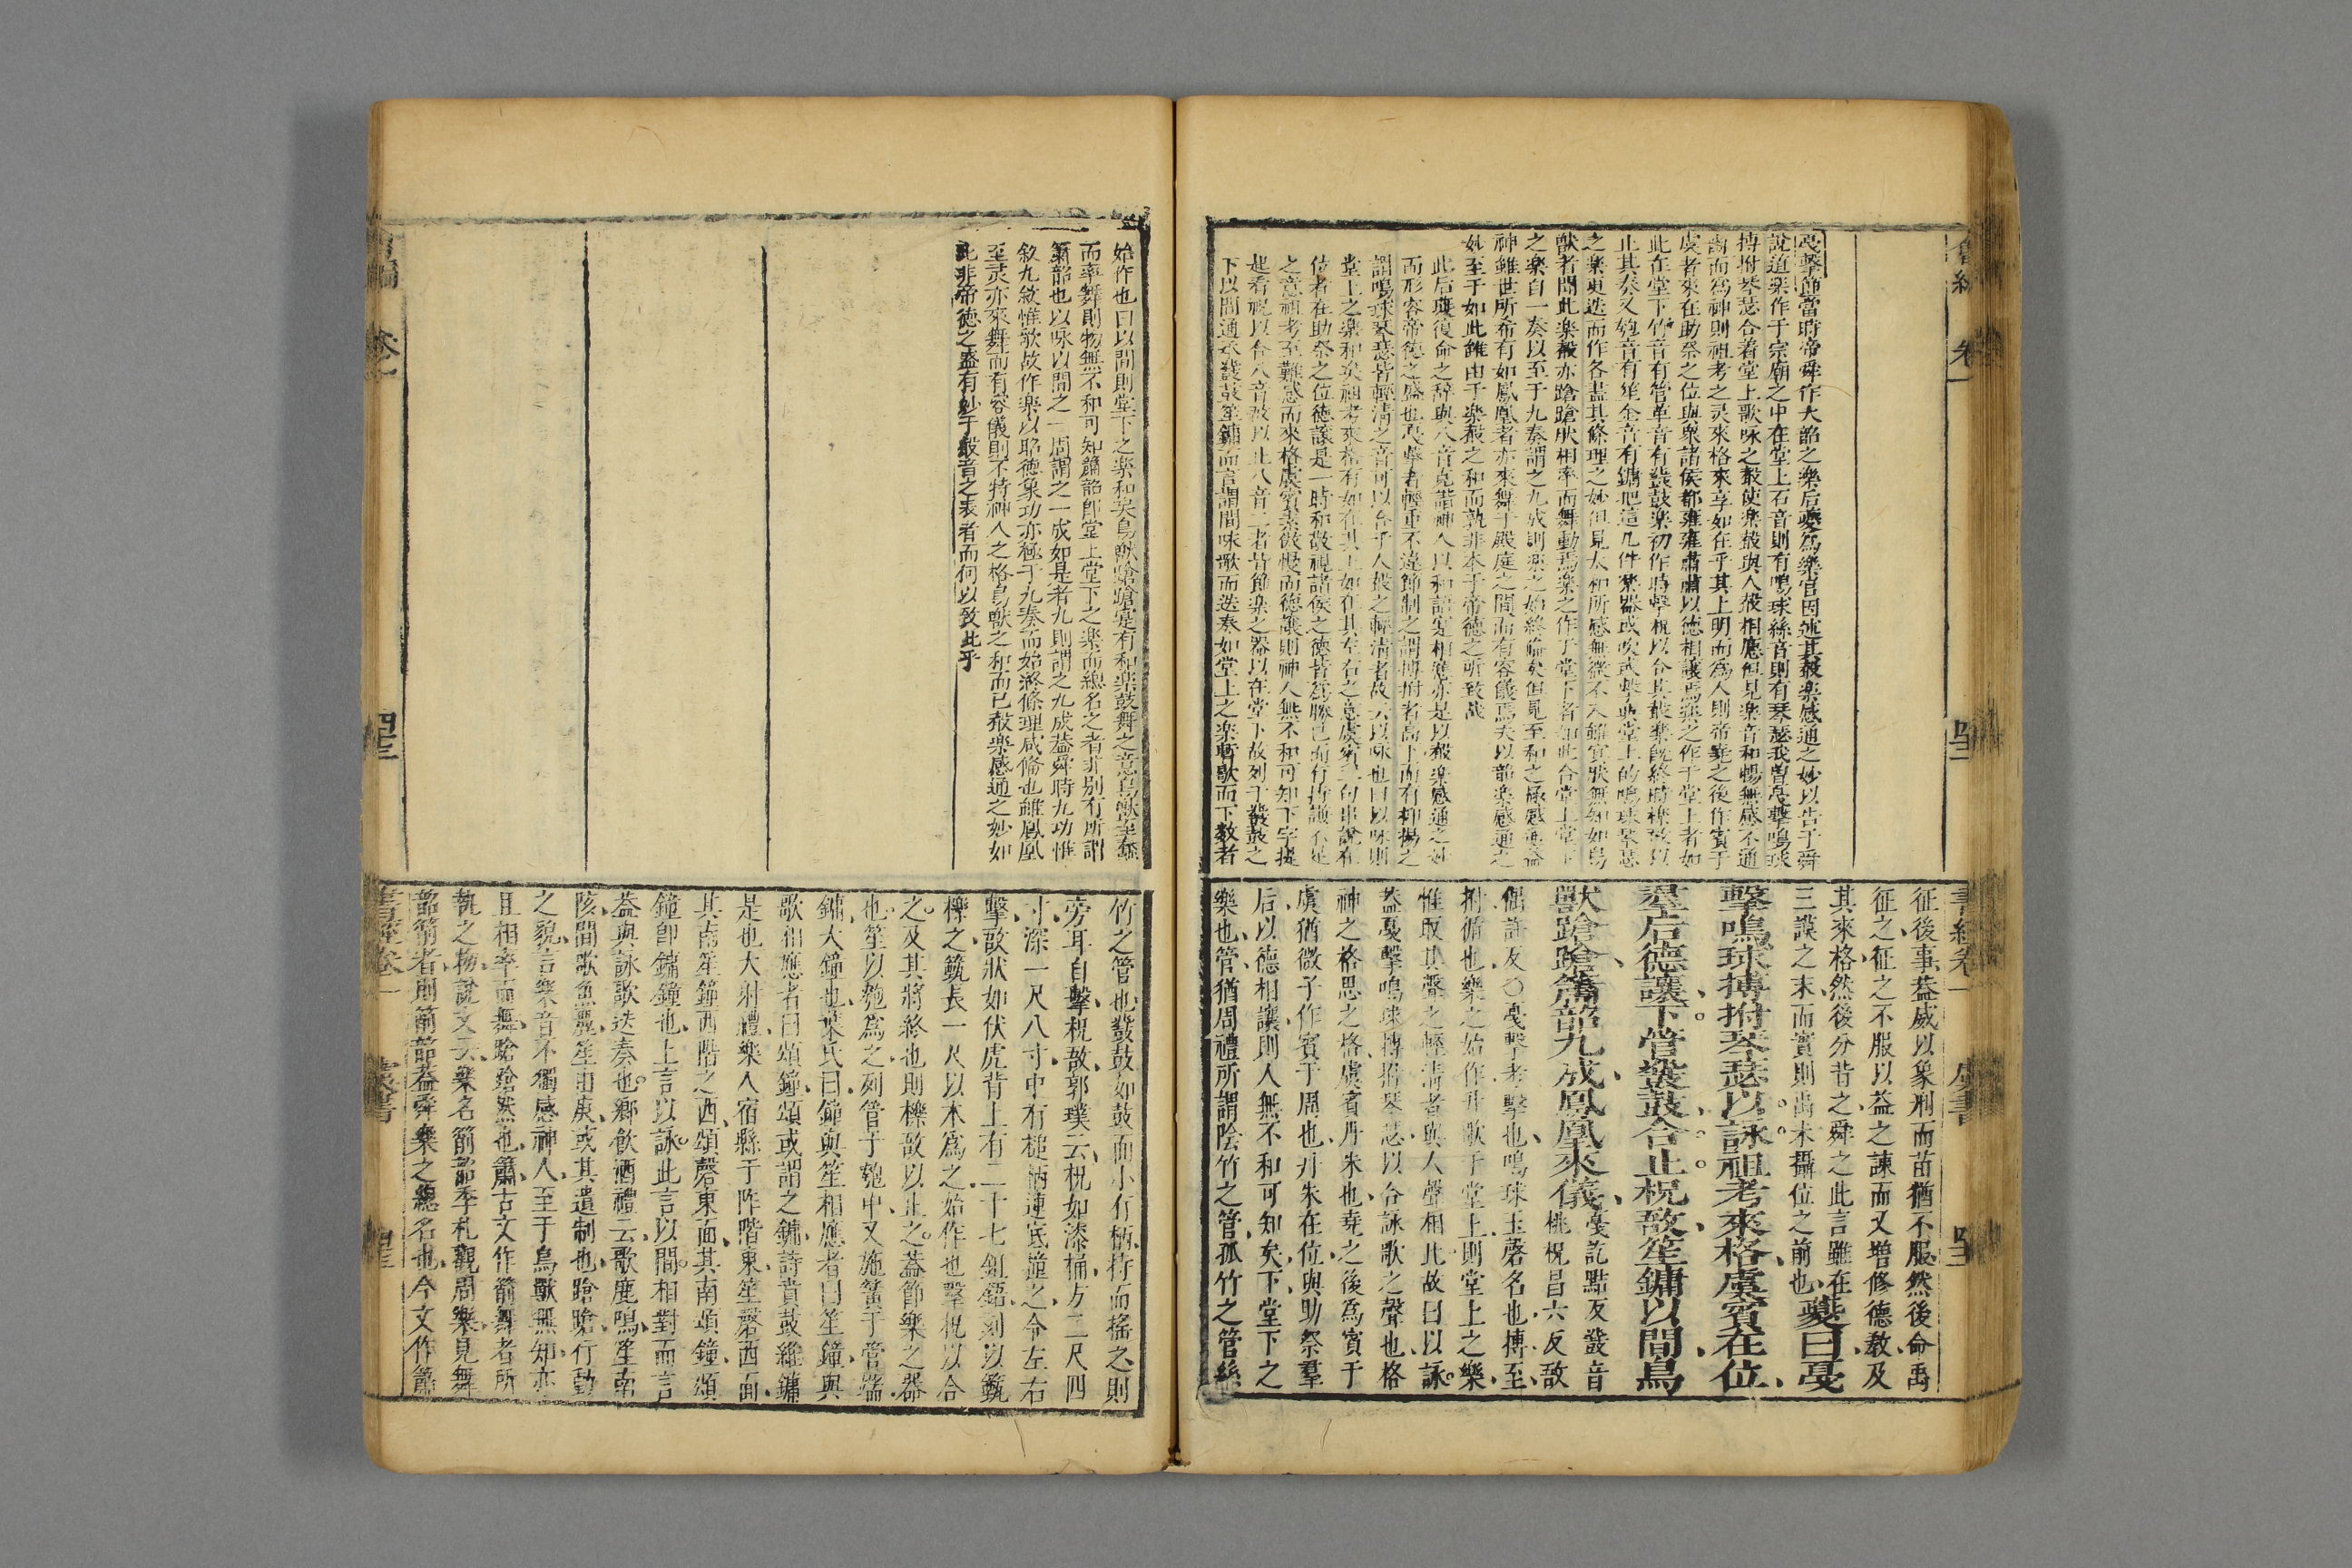 戞擊節當時帝舜作大韶之樂后夔為樂官因述其聲楽感通之妙以告于舜
說道楽作于宗廟之中在堂上石音則有鳴球絲音則有琴瑟我嘗戞擊鳴球
搏拊琴瑟合着堂上歌咏之聲使楽聲與人聲相應但見楽音和暢無感不通
幽而為神則祖考之灵來格來享如在乎其上明而為人則帝堯之後作賓于
虞者來在助祭之位與衆諸侯都雍雍肅肅以德相讓焉楽之作于堂上者如
此在堂下竹音有管革音有鼗鼓楽初作時擊柷以合其聲楽既終時櫟敔以
止其奏又匏音有笙金音有鏞把這几件楽器或吹或擊與堂上的鳴球琴瑟
之楽更迭而作各盡其條理之妙但見太和所感無微不入雖冥然無知如鳥
獸者聞此楽聲亦蹌蹌然相率而舞動焉楽之作于堂下者如此合堂上堂下
之楽自一奏以至于九奏謂之九成則楽之始終備矣但見至和之極感通益
神雖世所希有如鳳凰者亦來舞于殿庭之間而有容儀焉夫以韶楽感通之
妙至于如此雖由于楽聲之和而孰非本于帝德之所致哉
此后夔復命之辞與八音克諧神人以和語定相應亦是以聲楽感通之妙
而形容帝徳之盛也戞擊者輕重不違節制之謂搏拊者高下而有抑揚之
謂鳴球琴瑟皆輕清之音可以合乎人聲之輕清者故云以咏也曰以咏則
堂上之楽和矣祖考來格有如在其上如在其左右之意虞賓二句串說在
位者在助祭之位徳讓是一時和敬視諸侯之德皆為勝己而有撝謙不延
之意神考至難感而來格虞賓素傲慢而德讓則神人無不和可知下字提
起看柷以合八音敔以止八音二者皆節楽之器以在堂下故列于鼗鼓之
下以間通承鼗鼓笙鏞而言謂間咏歌而迭奏如堂上之楽暫歇而下数者
書經卷一 虞書
征後事蓋威以象刑而苗猶不服然後命禹
征之征之不服以益之諫而又增修德教及
其來格然後分背之舜之此言雖在
三謨之末而實則禹未攝位之前也 夔曰戛
擊鳴球搏拊琴瑟以詠祖考來格虞賓在位
羣后德讓下管鼗鼓合止柷敔笙鏞以間鳥
獸蹌蹌簫韶九成鳳凰來儀 戛訖點反鼗音
桃柷昌六反敔
偶許反○戛擊考擊也鳴球玉磬名也搏至
拊循也樂之始作升歌于堂上則堂上之樂
惟取其聲之輕清者與人聲相比故曰以詠
蓋戛擊鳴球搏拊琴瑟以合詠歌之聲也格
神之格思之格虞賓丹朱也堯之後為賓于
虞猶微子作賓于周也丹朱在位與助祭羣
后以德相讓則人無不和可知矣下堂下之
樂也管猶周禮所謂陰竹之管孤竹之管絲
始作也曰以間則堂下之楽和矣鳥獸蹌蹌寔有和楽鼓舞之意鳥獸至蠢
而率舞則物無不和可知簫韶即堂上堂下之楽而總名之者非別有所謂
簫韶也以咏以間之一周謂之一成如是者九則謂之九成葢舜時九功惟
敘九敘惟歌故作楽以昭徳象功亦極于九奏而始終條理咸脩也雖鳳凰
至灵亦來舞而有容儀則不特神人之格鳥獸之和而已聲楽感通之妙如
此非帝徳之盛有妙于聲音之表者而何以致此乎
竹之管也鼗鼓如鼓而小有柄持而搖之則
旁耳自擊柷敔郭璞云柷如漆桶方二尺四
寸深一尺八寸中有椎柄連底撞之令左右
擊敔狀如伏虎背上有二十七鉏鋙刻以籈
櫟之籈長一尺以木為之始作也擊柷以合
之及其將終也則櫟敔以止之蓋節樂之器
也笙以匏為之列管于匏中又施簧于管端
鏞大鐘也葉氏曰鐘與笙相應者曰笙鐘與
歌相應者曰頌鐘頌或謂之鏞詩賁鼓維鏞
是也大射禮樂人宿縣于阼階東笙磬西面
其南笙鐘西階之西頌磬東面其南頌鐘頌
鐘即鏞鐘也上言以詠此言以間相對而言
蓋與詠歌迭奏也鄉飲酒禮云歌鹿鳴笙南
陔間歌魚麗笙由庚或其遺制也蹌蹌行動
之貌言樂音不獨感神人至于鳥獸無知亦
且相率而舞蹌蹌然也簫古文作箾舞者所
執之物說文云樂名箾韶季札觀周樂見舞
韶箾者則箾韶蓋舜樂之總名也今文作簫